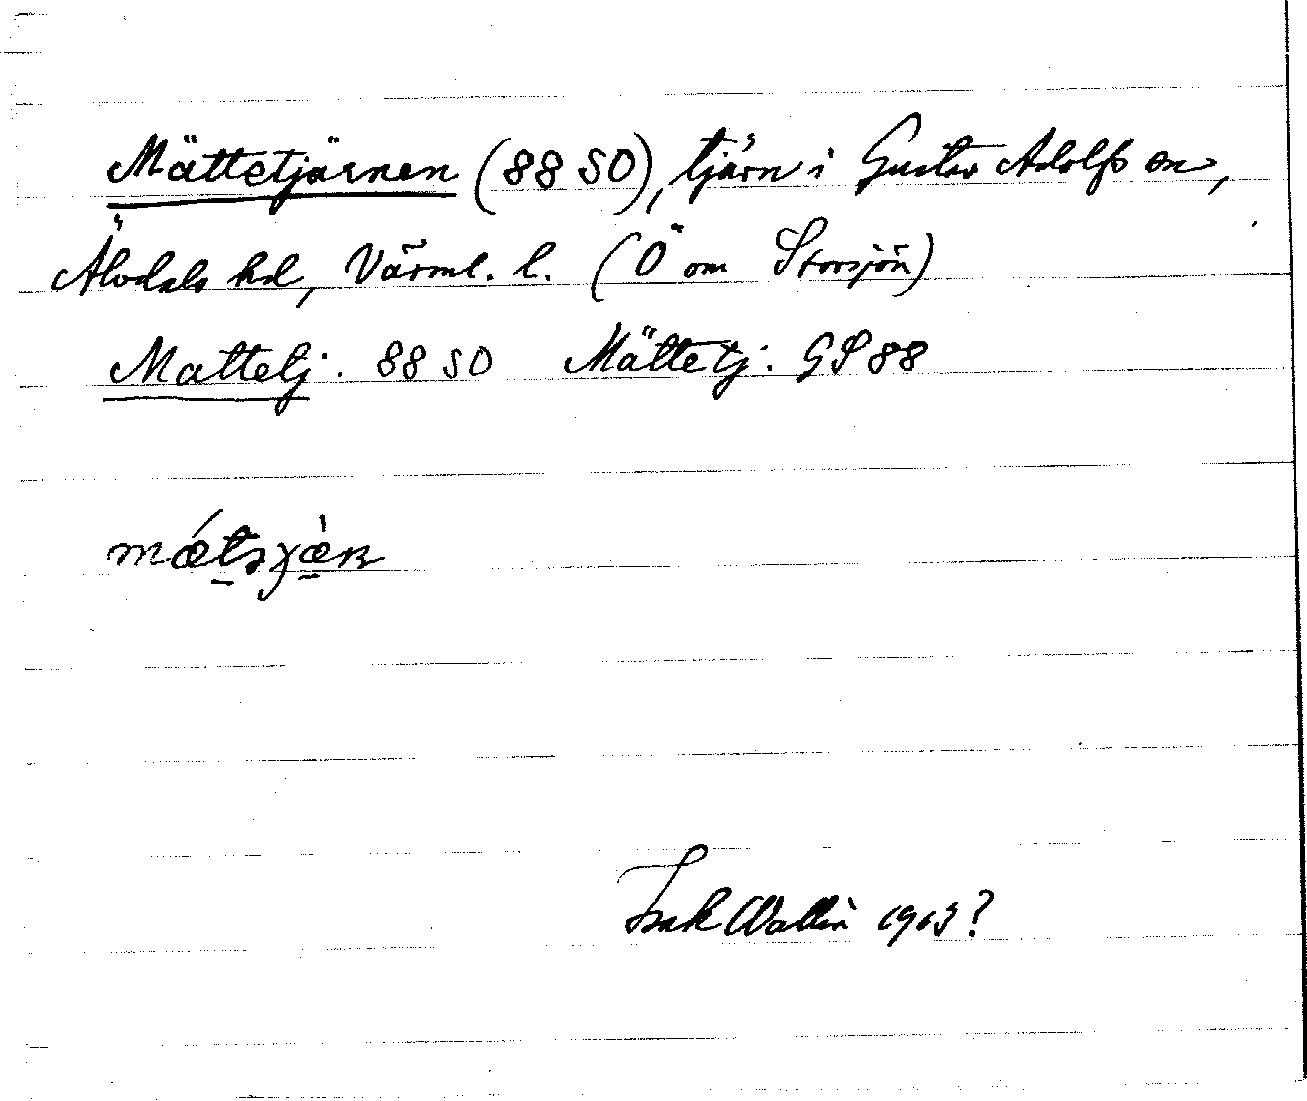 Mättetjärnen (88 SO), tjärn i Gustav Adolfs sn,
Älvdals hd, Värml. l. (Ö om Storsjön)
Mattetj. 88 SO Mättetj. GS 88
Isak Wallin 1913?